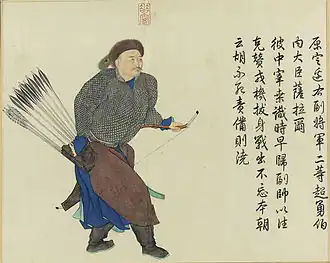 原定邊右副將軍二等超勇伯
內大臣薩拉爾
彼中宰桑識時早歸副師以往
克贊戎機拔身戰出不忘本朝
云胡不死責備則浇